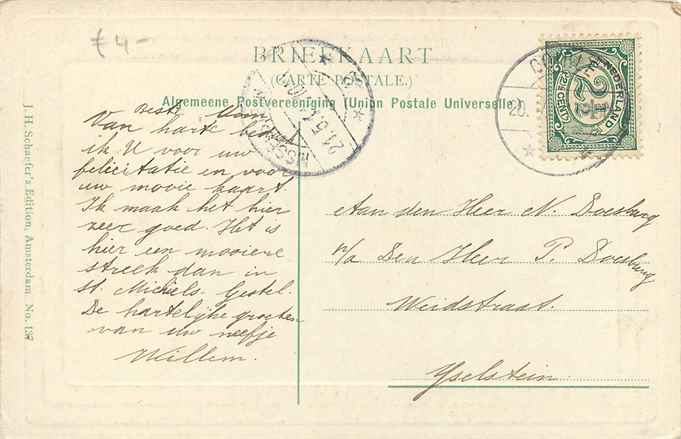 € 4-
BRIEFKAART
(CARTE POSTALE.)
Algemeene Postvereeniging (Union Postale Universelle)
J. H. Schaefer's Edition, Amsterdam No. 13
NEDERLAND
2½
CENT
20.
21.5.
Beste Oom
Van harte
ik U voor uw
felicitatie en voor
uw mooie kaart
Ik maak het hier
zeer goed. Het is
hier een mooiere
streek dan in
St. Michiels Gestel.
De hartelijke groeten
van uw neefje
Willem.
Aan den Heer N. Doesburg
p/a Den Heer P. Doesburg
Weidstraat.
Yselstein